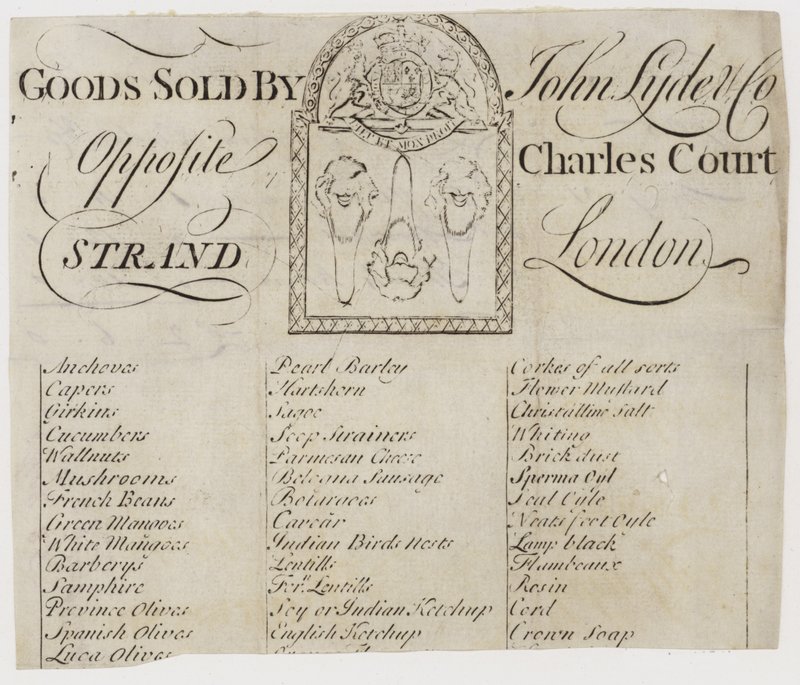 GOODS SOLD BY John Lyde & Co
Opposite Charles Court
STRAND London
DIEU ET MON DROIT
Anchoves
Capers
Girkins
Cucumbers
Wallnuts
Mushrooms
French Beans
Green Mangoes
White Mangoes
Barberys
Samphire
Province Olives
Spanish Olives
Luca Olives
Pearl Barley
Hartshorn
Sagoe
Soop Strainers
Parmesan Cheese
Belogna Sausage
Botargoes
Cavear
Indian Birds Nests
Lentills
For. Lentills
Soy or Indian Ketchup
English Ketchup
Corkes of all sorts
Flower Mustard
Christalline Salt
Whiting
Brick dust
Sperma Oyl
Seal Oyle
Neats feet Oyle
Lamp black
Flambeaux
Rosin
Cord
Crown Soap